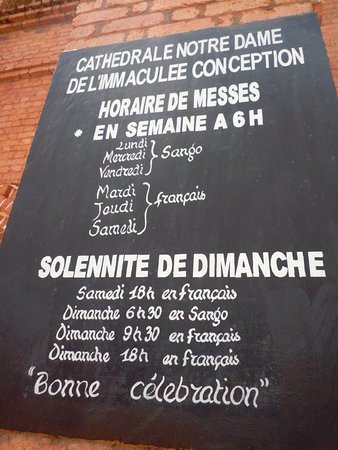 CATHEDRALE NOTRE DAME
DE L'IMMACULEE CONCEPTION
HORAIRE DE MESSES
EN SEMAINE A 6H
Lundi
Mercredi } Sango
Vendredi
Mardi
Jeudi } français
Samedi
SOLENNITE DE DIMANCHE
Samedi 18h en français
Dimanche 6h30 en Sango
Dimanche 9h30 en français
Dimanche 18h en français
"Bonne célebration"